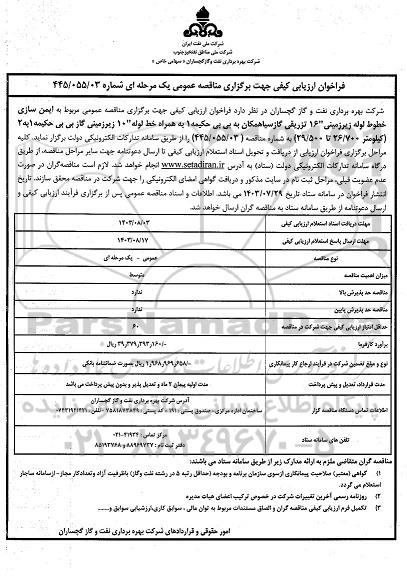 شرکت ملی نفت ایران
شرکت ملی مناطق نفتخیز جنوب
شرکت بهره برداری نفت و گاز گچساران «سهامی خاص»
فراخوان ارزیابی کیفی جهت برگزاری مناقصه عمومی یک مرحله ای شماره ۴۴۵/۰۵۵/۰۳
شرکت بهره برداری نفت و گاز گچساران در نظر دارد فراخوان ارزیابی کیفی جهت برگزاری مناقصه عمومی مربوط به ایمن سازی
خطوط لوله زیرزمینی "۱۶ تزریقی گازسیاهمکان به بی بی حکیمه۱ به همراه خط لوله "۱۰ زیرزمینی گاز بی بی حکیمه۱به۲
(کیلومتر ۲۶/۷۰۰ تا ۲۹/۵۰۰) به شماره مناقصه (۴۴۵/۰۵۵/۰۳) را از طریق سامانه تدارکات الکترونیکی دولت برگزار نماید. کلیه
مراحل برگزاری فراخوان ارزیابی از دریافت و تحویل اسناد استعلام ارزیابی کیفی تا ارسال دعوتنامه جهت سایر مراحل مناقصه، از طریق
درگاه سامانه تدارکات الکترونیکی دولت (ستاد) به آدرس www.setadiran.ir انجام خواهد شد. لازم است مناقصه‌گران در صورت
عدم عضویت قبلی، مراحل ثبت نام در سایت مذکور و دریافت گواهی امضای الکترونیکی را جهت شرکت در مناقصه محقق سازند. تاریخ
انتشار فراخوان در سامانه ستاد تاریخ ۱۴۰۳/۰۷/۲۹ می باشد. اطلاعات و اسناد مناقصه عمومی پس از برگزاری فرآیند ارزیابی کیفی و
ارسال دعوتنامه از طریق سامانه ستاد به مناقصه گران ارسال خواهد شد.
مهلت دریافت اسناد استعلام ارزیابی کیفی ۱۴۰۳/۰۸/۰۳
مهلت ارسال پاسخ استعلام ارزیابی کیفی ۱۴۰۳/۰۸/۱۷
نوع مناقصه عمومی - یک مرحله ای
میزان اهمیت مناقصه متوسط
مناقصه حد پذیرش بالا ندارد
مناقصه حد پذیرش پایین ندارد
حداقل امتیاز ارزیابی کیفی جهت شرکت در مناقصه ۶۰
برآورد کارفرما ۳۹,۳۷۹,۳۹۳,۱۶۰/- ریال
نوع و مبلغ تضمین شرکت در فرآیند ارجاع کار پیمانکاری ۱,۹۶۸,۹۶۹,۶۵۸/- ریال بصورت ضمانتنامه بانکی
مدت قرارداد، تعدیل و پیش پرداخت مدت اولیه پیمان ۲ ماه و تعدیل پذیر و بدون پیش پرداخت می باشد
اطلاعات تماس دستگاه مناقصه گزار آدرس شرکت بهره برداری نفت و گاز گچساران
ساختمان اداره مرکزی- صندوق پستی
تلفن های سامانه ستاد مرکز تماس: ۴۱۹۳۴-۰۲۱
دفتر ثبت نام: ۸۸۹۶۹۷۳۷ و ۸۵۱۹۳۷۶۸
مناقصه گران متقاضی ملزم به ارائه مدارک زیر از طریق سامانه ستاد می باشند:
۱) گواهی (معتبر) صلاحیت پیمانکاری ازسوی سازمان برنامه و بودجه (حداقل رتبه ۵ در رشته نفت وگاز) باظرفیت آزاد وتعدادکار مجاز- ازسامانه ساجار
استعلام می گردد.
۲) روزنامه رسمی آخرین تغییرات شرکت در خصوص ترکیب اعضای هیات مدیره
۳) تکمیل فرم ارزیابی کیفی مناقصه گران و الصاق مستندات مربوط به توان مالی ، سوابق کاری،ارزشیابی سوابق و......
امور حقوقی و قراردادهای شرکت بهره برداری نفت و گاز گچساران